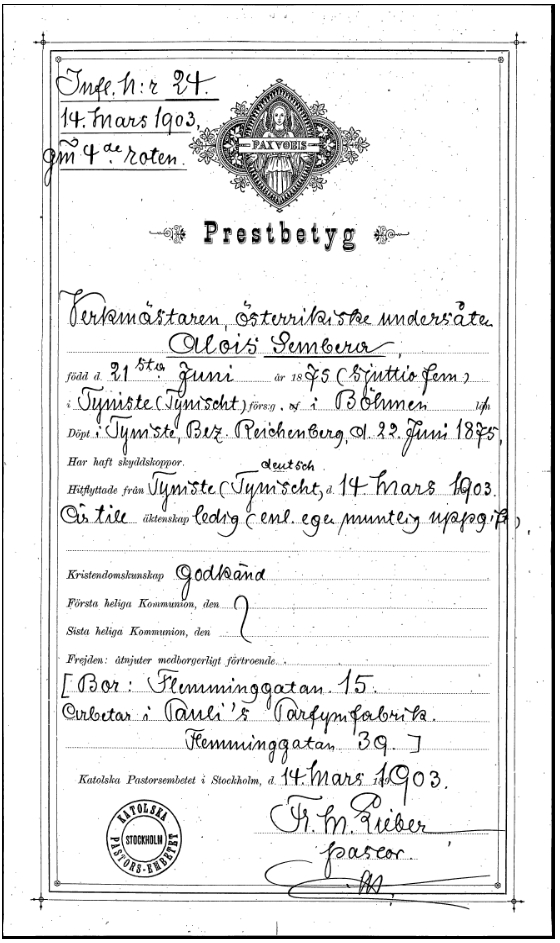 Infl. N:r 24.
14. Mars 1903,
gm 4de roten.
PAX VOBIS
Prestbetyg
Verkmästaren, österrikiske undersåten
Alois Sembera,
född d. 21sta Juni år 1875 (Sjuttio fem)
i Tyniste (Tynischt) förs:g, i Böhmen län
Döpt i Tyniste, Bez. Reichenberg, d. 22. Juni 1875,
Har haft skyddskoppor.
deutsch
Hitflyttade från Tyniste (Tynischt, d. 14 Mars 1903.
Är till äktenskap ledig (enl. egen muntlig uppgift),
Kristendomskunskap Godkänd
Första heliga Kommunion, den
Sista heliga Kommunion, den
Frejden: åtnjuter medborgerligt förtroende.
[Bor: Flemminggatan 15.
Arbetar i Pauli's Parfymfabrik.
Flemminggatan 39.]
Katolska Pastorsembetet i Stockholm, d. 14. Mars 1903.
Fr. M. Lieber
pastor.
KATOLSKA
STOCKHOLM
PASTORS-EMBETET